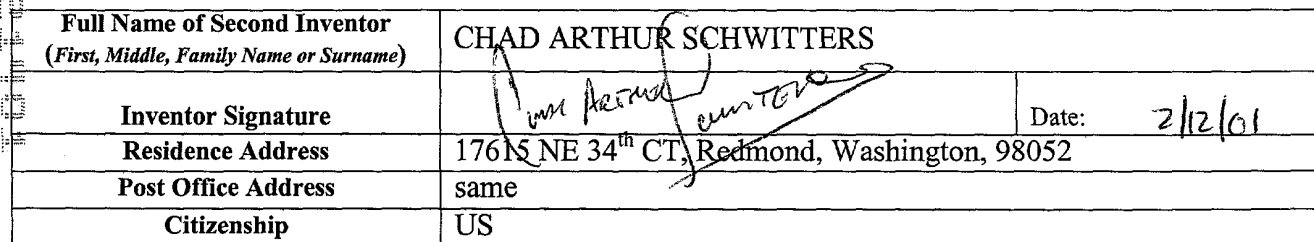 Full Name of Second Inventor
(First, Middle, Family Name or Surname)
CHAD ARTHUR SCHWITTERS
Inventor Signature
Chad Arthur Schwitters
Date: 2/12/01
Residence Address
17615 NE 34th CT, Redmond, Washington, 98052
Post Office Address
same
Citizenship
US